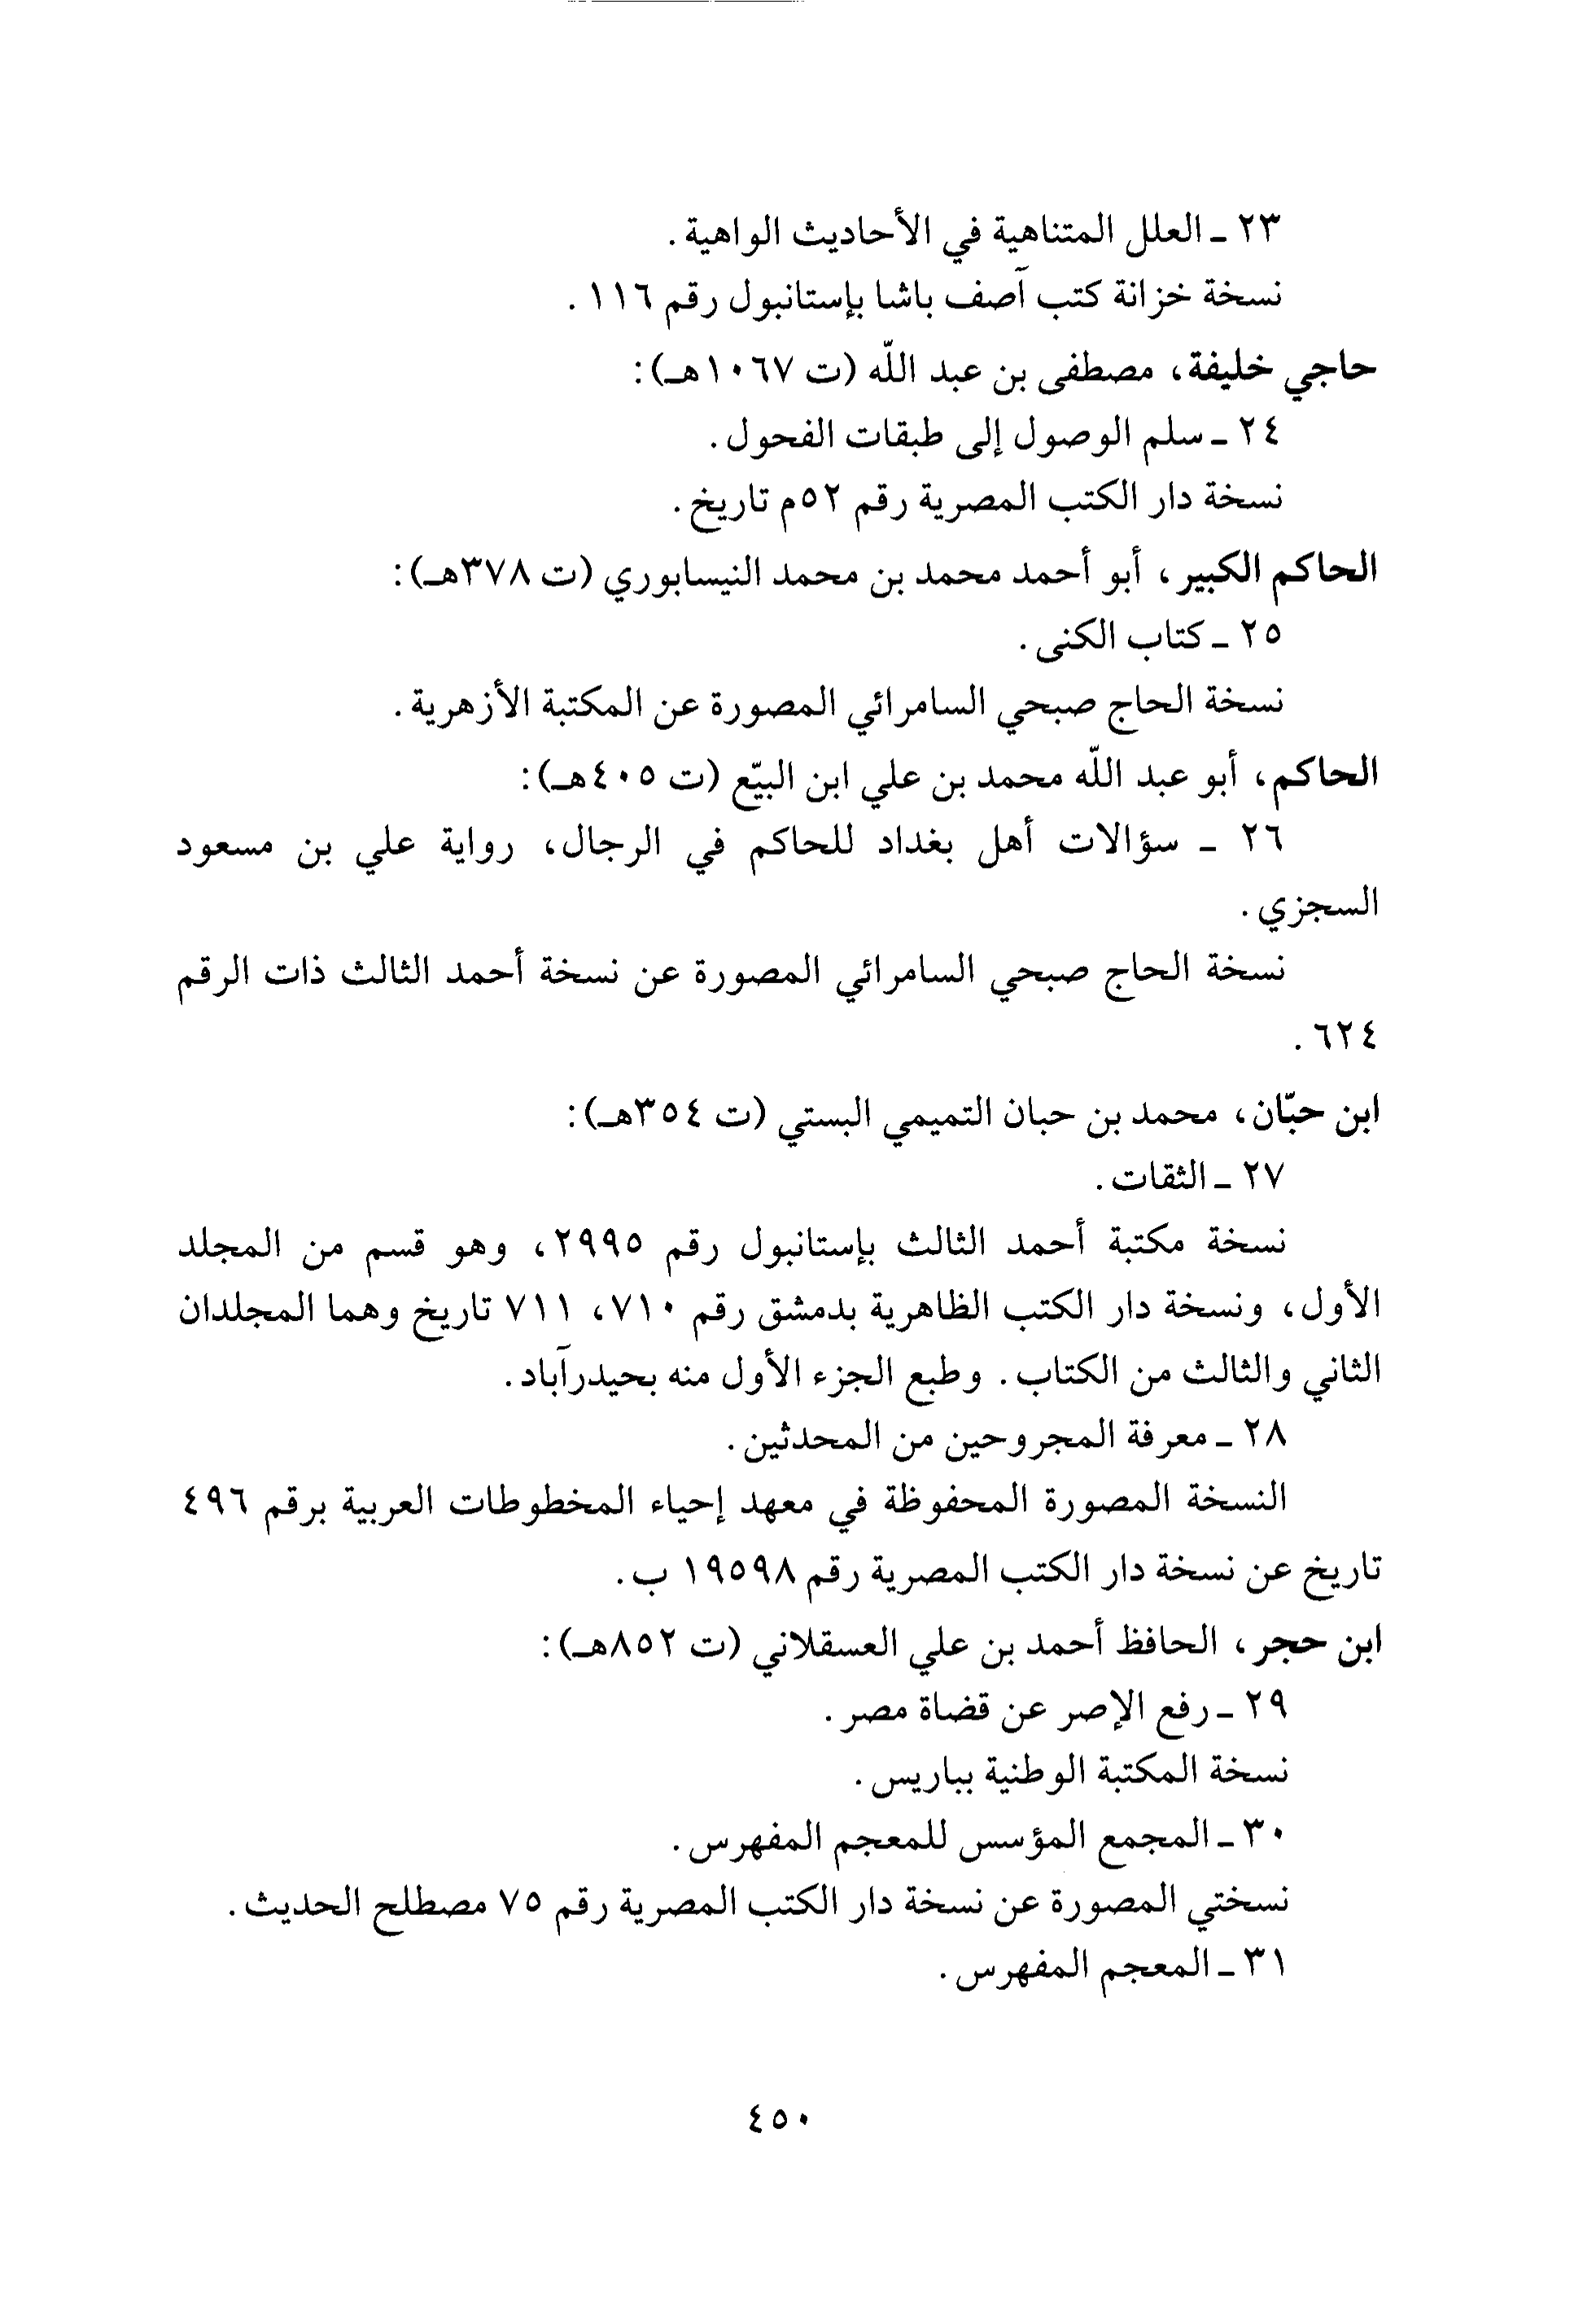 ٢٣ ـ العلل المتناهية في الأحاديث الواهية.
نسخة خزانة كتب آصف باشا بإستانبول رقم ١١٦.
حاجي خليفة، مصطفى بن عبد اللّه (ت ١٠٦٧هـ):
٢٤ ـ سلم الوصول إلى طبقات الفحول.
نسخة دار الكتب المصرية رقم ٥٢م تاريخ.
الحاكم الكبير، أبو أحمد محمد بن محمد النيسابوري (ت ٣٧٨هـ):
٢٥ ـ كتاب الكنى.
نسخة الحاج صبحي السامرائي المصورة عن المكتبة الأزهرية.
الحاكم، أبو عبد اللّه محمد بن علي ابن البيّع (ت ٤٠٥هـ):
٢٦ ـ سؤالات أهل بغداد للحاكم في الرجال، رواية علي بن مسعود
السجزي.
نسخة الحاج صبحي السامرائي المصورة عن نسخة أحمد الثالث ذات الرقم
٦٢٤.
ابن حبّان، محمد بن حبان التميمي البستي (ت ٣٥٤هـ):
٢٧ ـ الثقات.
نسخة مكتبة أحمد الثالث بإستانبول رقم ٢٩٩٥، وهو قسم من المجلد
الأول، ونسخة دار الكتب الظاهرية بدمشق رقم ٧١٠، ٧١١ تاريخ وهما المجلدان
الثاني والثالث من الكتاب. وطبع الجزء الأول منه بحيدرآباد.
٢٨ ـ معرفة المجروحين من المحدثين.
النسخة المصورة المحفوظة في معهد إحياء المخطوطات العربية برقم ٤٩٦
تاريخ عن نسخة دار الكتب المصرية رقم ١٩٥٩٨ ب.
ابن حجر، الحافظ أحمد بن علي العسقلاني (ت ٨٥٢هـ):
٢٩ ـ رفع الإصر عن قضاة مصر.
نسخة المكتبة الوطنية بباريس.
٣٠ ـ المجمع المؤسس للمعجم المفهرس.
نسختي المصورة عن نسخة دار الكتب المصرية رقم ٧٥ مصطلح الحديث.
٣١ ـ المعجم المفهرس.
٤٥٠